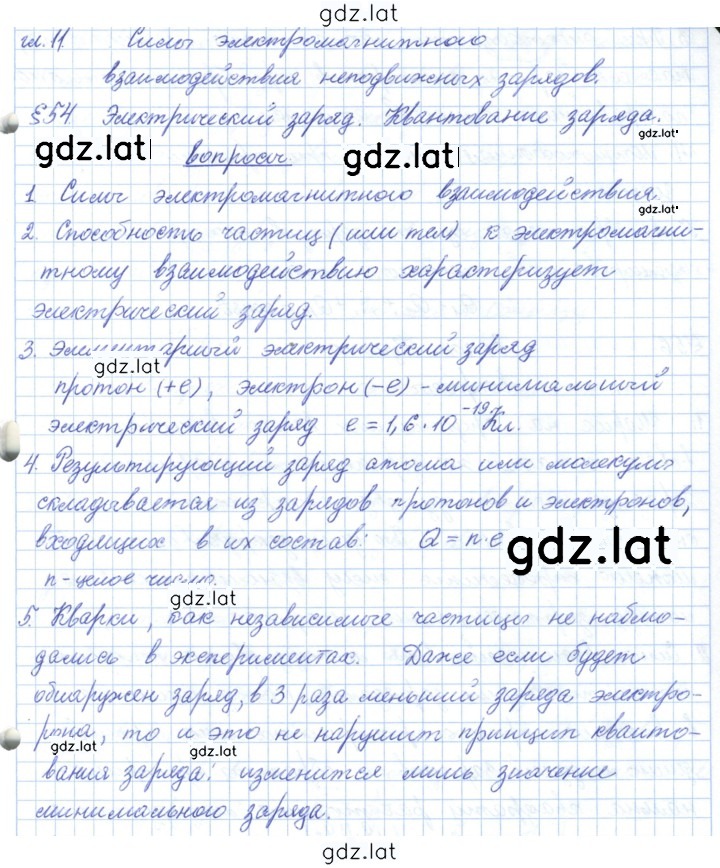 gdz.lat
гл. 11 Силы электромагнитного
взаимодействия неподвижных зарядов.
§54 Электрический заряд. Квантование заряда.
gdz.lat
gdz.lat вопросы gdz.lat
1 Силы электромагнитного взаимодействия
gdz.lat
2. Способность частиц (или тел) к электромагни-
тному взаимодействию характеризует
электрический заряд.
3. электрический заряд
gdz.lat
протон (+e), электрон (-e) - минимальный
электрический заряд e = 1,6 · 10⁻¹⁹ Кл.
4. Результирующий заряд атома или молекулы
складывается из зарядов протонов и электронов,
входящих в их состав: Q = n · e
gdz.lat
n - целое число.
gdz.lat
5. Кварки, как независимые частицы не наблю-
дались в экспериментах. Даже если будет
обнаружен заряд, в 3 раза меньший заряда электро-
на, то и это не нарушит принцип кванто-
gdz.lat gdz.lat
вания заряда: изменится лишь значение
минимального заряда.
gdz.lat